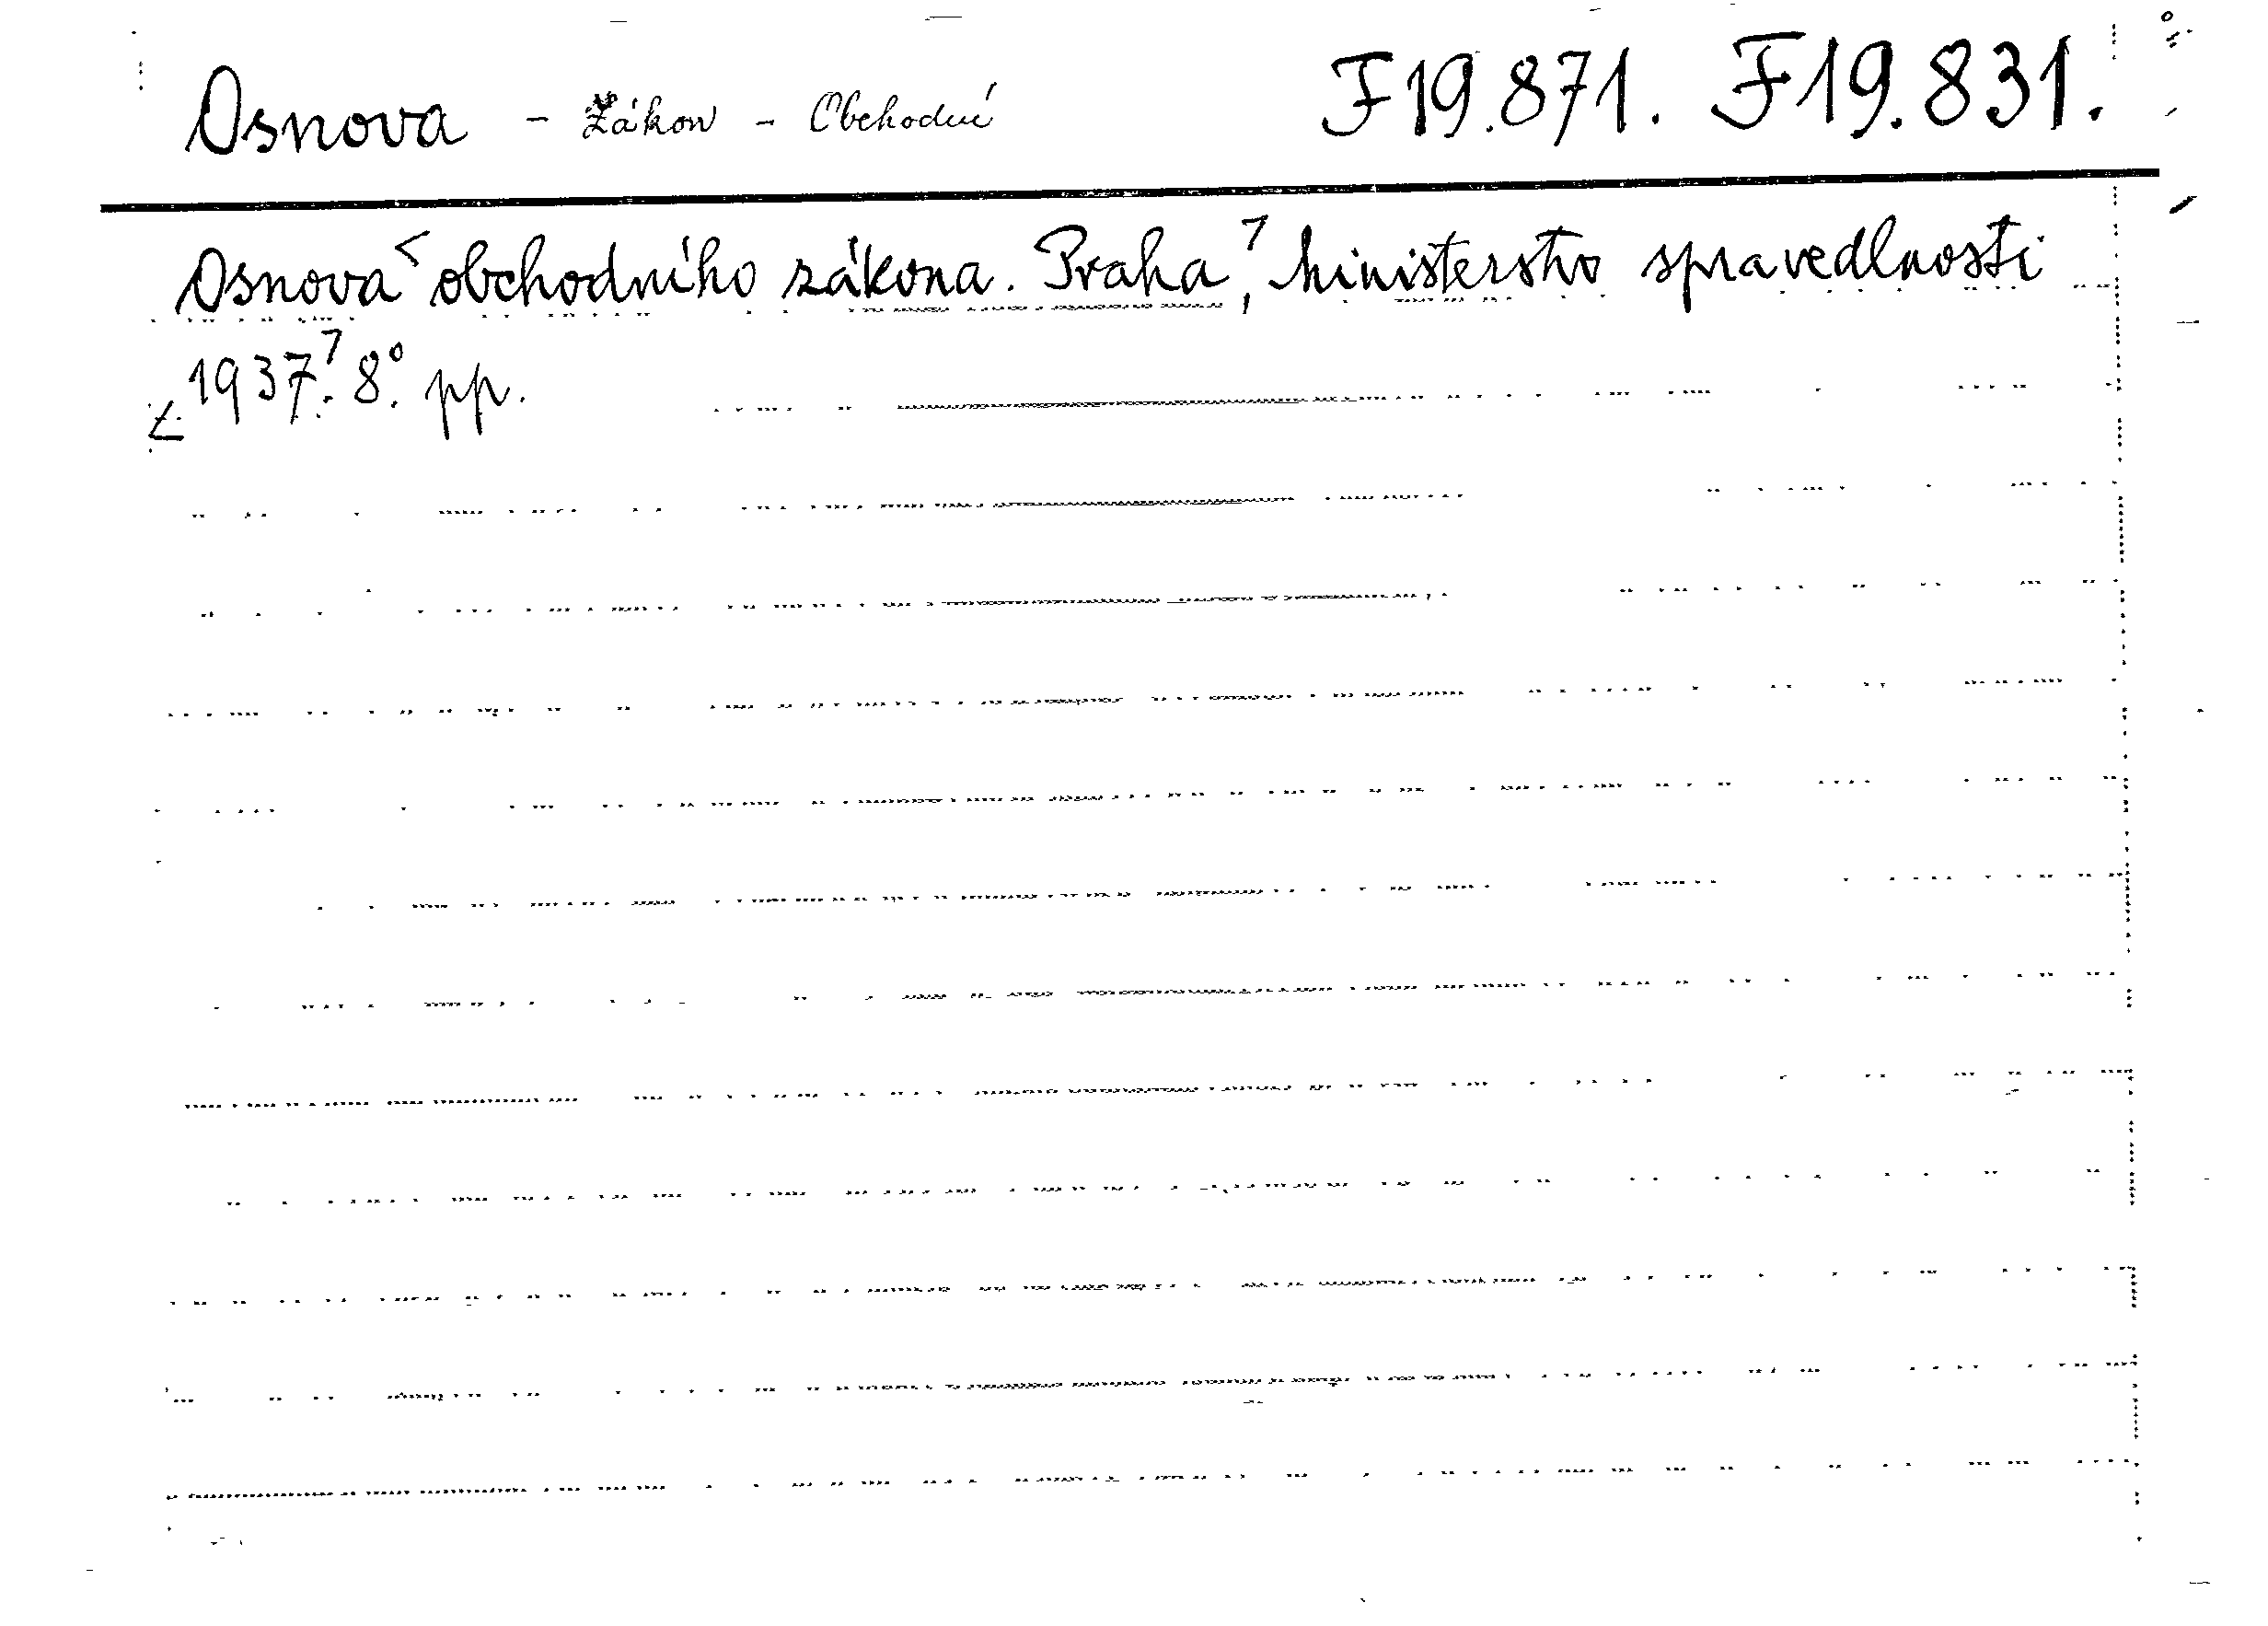 Osnova - Zákon - Obchodní F19.871. F19.831.
Osnova obchodního zákona. Praha, Ministerstvo spravedlnosti
1937. 8°. pp.